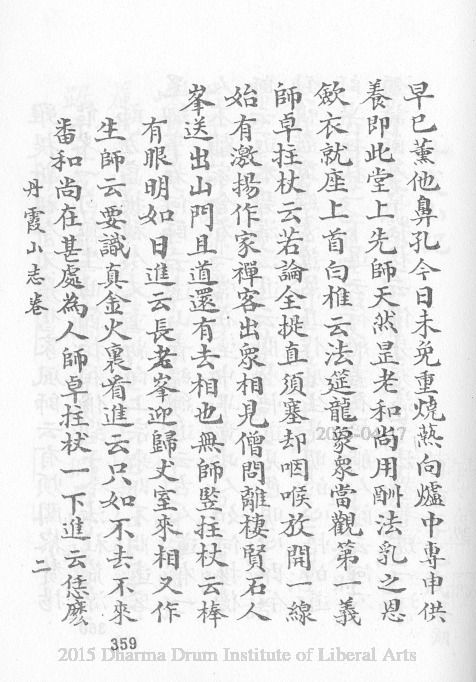 早已薰他鼻孔今日未免重燒爇向爐中專申供
養即此堂上先師天然昰老和尚用酬法乳之恩
斂衣就座上首白椎云法筵龍象眾當觀第一義
師卓拄杖云若論全提直須塞却咽喉放開一線
始有激揚作家禪客出眾相見僧問離棲賢石人
峯送出山門且道還有去相也無師豎拄杖云棒
有眼明如日進云長老峯迎歸丈室來相又作
生師云要識真金火裏看進云只如不去不來
畨和尚在甚處為人師卓拄杖一下進云恁麼
丹霞山志卷
二
359
2015 Dharma Drum Institute of Liberal Arts